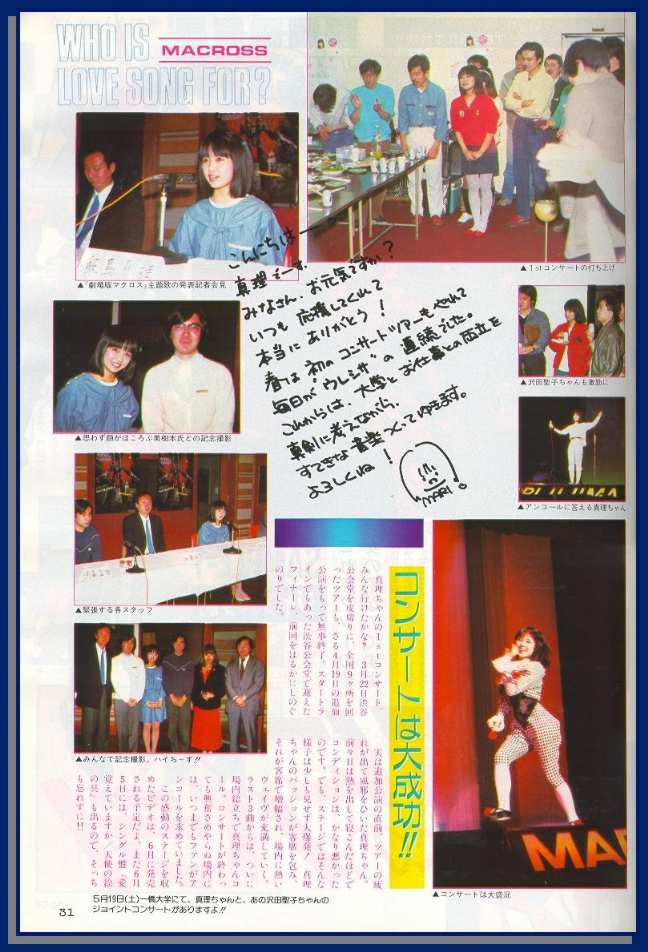 WHO IS
LOVE SONG FOR?
MACROSS
▲「劇場版マクロス」主題歌の発表記者会見
▲1stコンサートの打ち上げ
こんにちは──
真理でーす。
みなさん、お元気ですか?
いつも 応援してくれて
本当に ありがとう!
春は 初の コンサートツアーもやれて
毎日が“ウレシサ”の 連続でした。
これからは、大学と お仕事との 両立を
真剣に考えながら、
すてきな 音楽 つくってゆきます。
よろしくね!
MARI
▲思わず顔がほころぶ美樹本氏との記念撮影
▲沢田聖子ちゃんも激励に
▲アンコールに答える真理ちゃん
▲緊張する各スタッフ
▲みんなで記念撮影、ハイちーず!!
コンサートは大成功!!
真理ちゃんの1stコンサート、
みんな行けたかな? 3月22日渋谷
公会堂を皮切りに、全国9ケ所を回
ったツアーも、さる4月19日の追加
公演をもって無事終了。スタートラ
インでもあった渋谷公会堂で迎えた
フィナーレ、前回をはるかにしのぐ
のりでした。
実は追加公演の直前、ツアーの疲
れが出て風邪をひいた真理ちゃん。
前々日は熱を出して寝こんだほどで
コンディションは、かなり悪かった
のです。でも、ステージではそんな
様子は少しも見せず大爆発! 真理
ちゃんのパッションが客席を包み、
それが客席で増幅され、場内に熱い
ウェイヴが充満していく。
ラスト3曲からは、ついに
場内総立ちで真理ちゃんコ
ール。コンサートが終わっ
ても興奮さめやらぬ場内に
は、いつまでもファンがア
ンコールを求めていました。
この感動のステージを収
めたビデオは、6月に発売
される予定だよ。また6月
5日には、シングル盤「愛・
覚えていますか/天使の絵
の具」も出るので、そっち
も忘れずに!!
MA
▲コンサートは大盛況
5月19日(土)一橋大学にて、真理ちゃんと、あの沢田聖子ちゃんの
ジョイントコンサートがありますよ!!
31